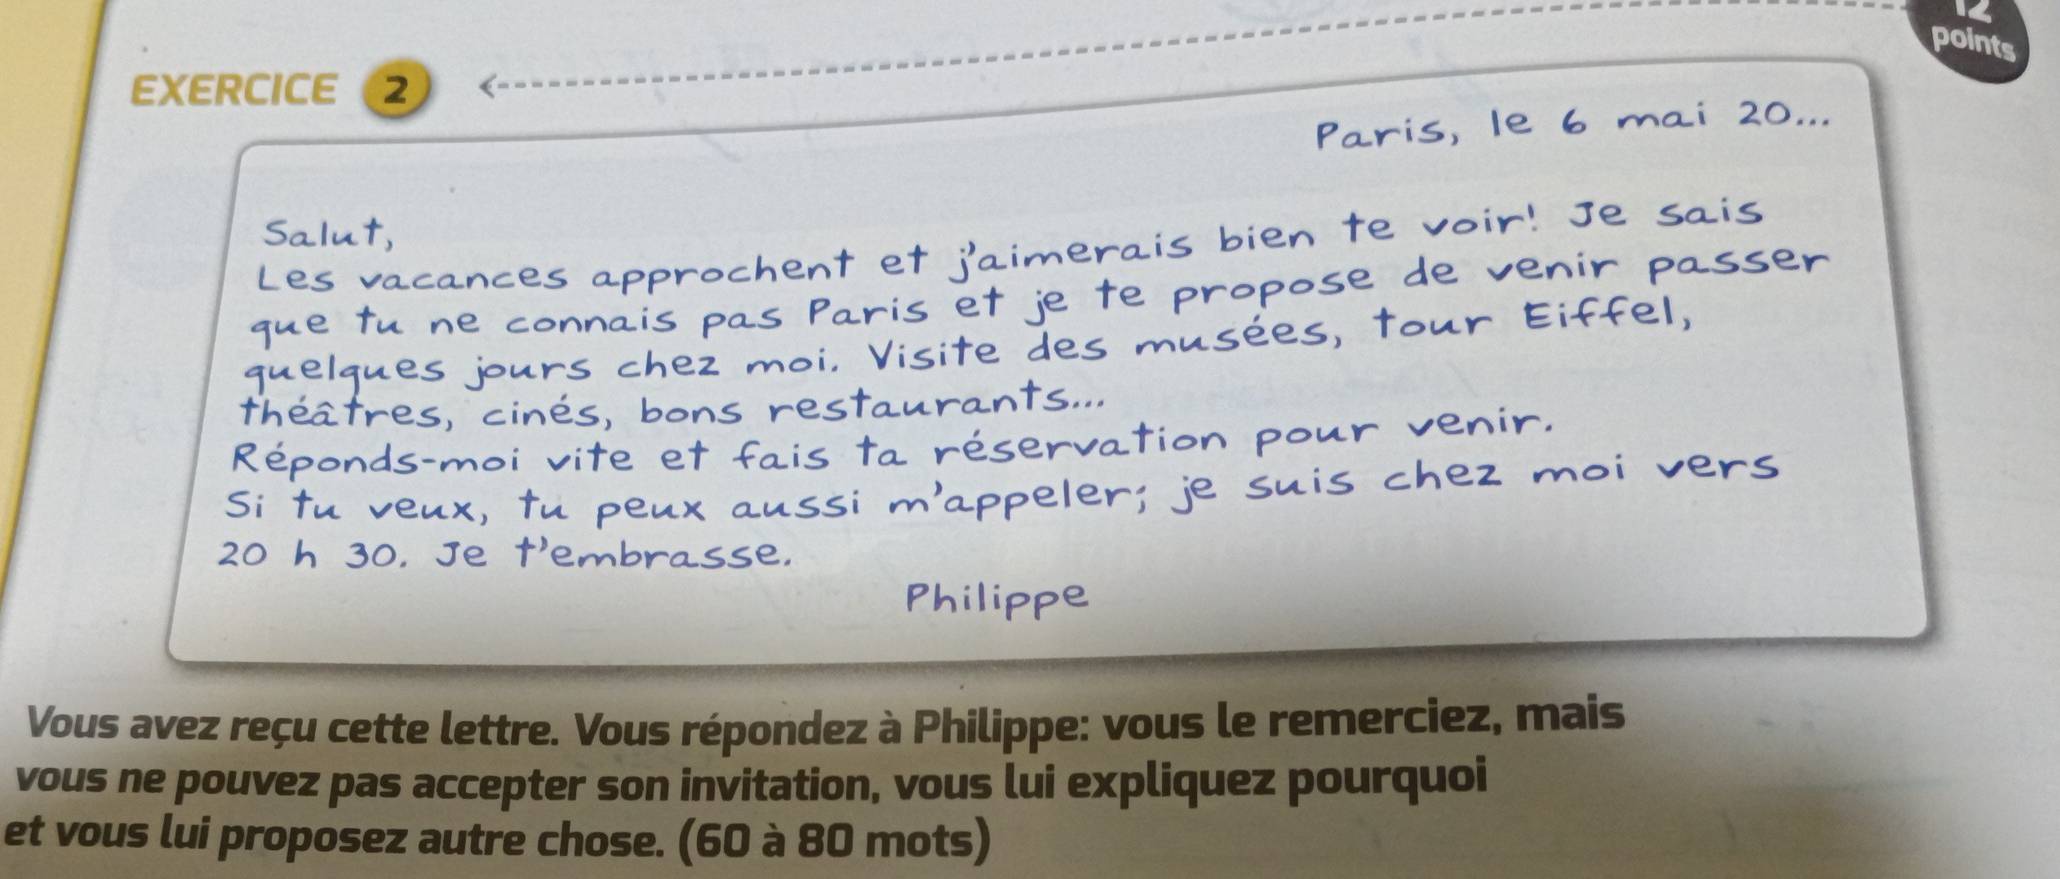 12
points
EXERCICE 2
Paris, le 6 mai 20...
Salut,
Les vacances approchent et j'aimerais bien te voir! Je sais
que tu ne connais pas Paris et je te propose de venir passer
quelques jours chez moi. Visite des musées, tour Eiffel,
théâtres, cinés, bons restaurants...
Réponds-moi vite et fais ta réservation pour venir.
Si tu veux, tu peux aussi m'appeler; je suis chez moi vers
20 h 30. Je t'embrasse.
Philippe
Vous avez reçu cette lettre. Vous répondez à Philippe: vous le remerciez, mais
vous ne pouvez pas accepter son invitation, vous lui expliquez pourquoi
et vous lui proposez autre chose. (60 à 80 mots)